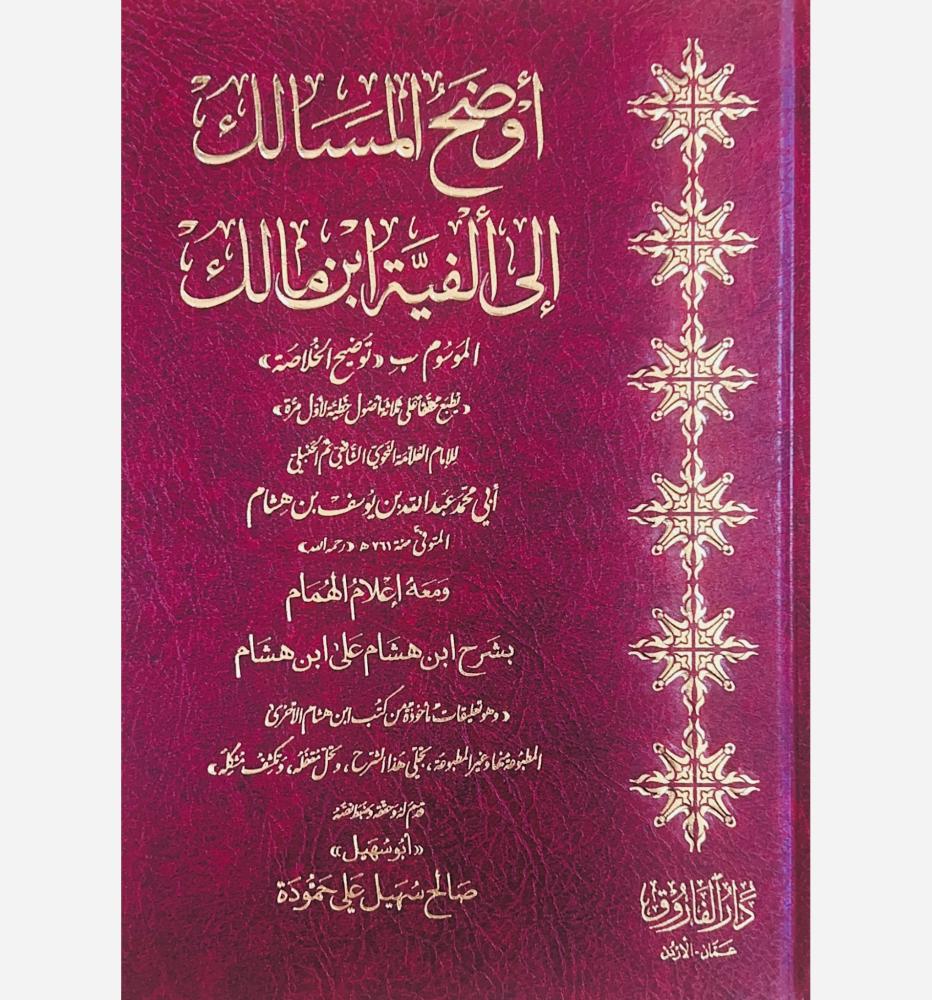 أوضَحُ المسَالك
إلى ألفيَّة ابن مالك
الموَسُوم ب «توُضيح الخُلاصَة»
«يُطبع محققاً على ثلاثة أصول خطيّة لأوّل مرّة»
للإمام العَلامَة النحَوي الشافعي ثم الحنبليّ
أبي محمَّد عبد الله بن يوُسف بن هِشام
المتوفىَّ سَنة ٧٦١ ه «رحمه الله»
وَمَعَهُ إعْلَامُ الهُمَام
بشَرح ابن هشَام عَلى ابن هشَام
«وهو تعليقات مأخوذة من كتُب ابن هشام الأخرى
المطبُوعَة منها وغير المطبوعة، تجُلي هَذا الشرح، وتحُلّ مُقفَله، وتكشِفُ مُشكِله»
قدم له وحققه وضبط نصّه
«أبو سُهَيل»
صَالح سُهَيل عَلي حَمّوُدَة
دَارُ الفَارُوق
عَمَّان-الأردُن